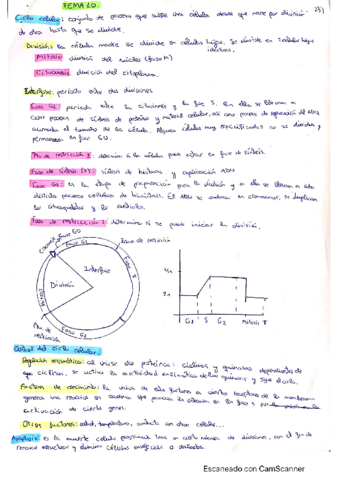 TEMA 20.
Ciclo celular: conjunto de procesos que sufre una célula desde que nace por división
de otra hasta que se divide.
División: la célula madre se divide en células hijas. Se divide en 2 células hijas
idénticas.
Mitosis: división del núcleo (fase M)
Citocinesis: división del citoplasma.
Interfase: periodo entre dos divisiones
Fase G1: periodo entre la citocinesis y la fase S. En ella se llevan a
cabo procesos de síntesis de proteínas y material celular, así como procesos de reparación del ADN
aumenta el tamaño de la célula. Algunas células muy especializadas no se dividen y
permanecen en fase G0.
Pto de restricción: determina si la célula para entrar en fase de síntesis.
Fase de síntesis (S): síntesis de histonas y replicación ADN
Fase G2: es la etapa de preparación para la división y en ella se llevan a cabo
distintos procesos
el ADN se condensa en cromosomas, se duplican
los
Punto de restricción: determina si se puede iniciar la división.
Fase G0
Punto de restricción
Fase G1
Interfase
División
Mitosis
Fase S
Fase G2
Pto de
restricción
4n
2n
G1 S G2 Mitosis T
Control del ciclo celular:
Regulación enzimática: al unirse dos proteínas: ciclinas y quinasas dependientes de
ciclinas, se activa la actividad enzimática de las quinasas y sigue el ciclo.
Factores de crecimiento: la unión de estos factores a ciertos receptores de la membrana
genera una reacción en cadena que provoca la entrada en la fase S por
activación de ciertos genes.
Otros factores: edad, temperatura, contacto con otras células...
Apoptosis: es la muerte celular programada tras un cierto número de divisiones, con el fin de
renovar estructuras y eliminar células envejecidas o dañadas.
Escaneado con CamScanner